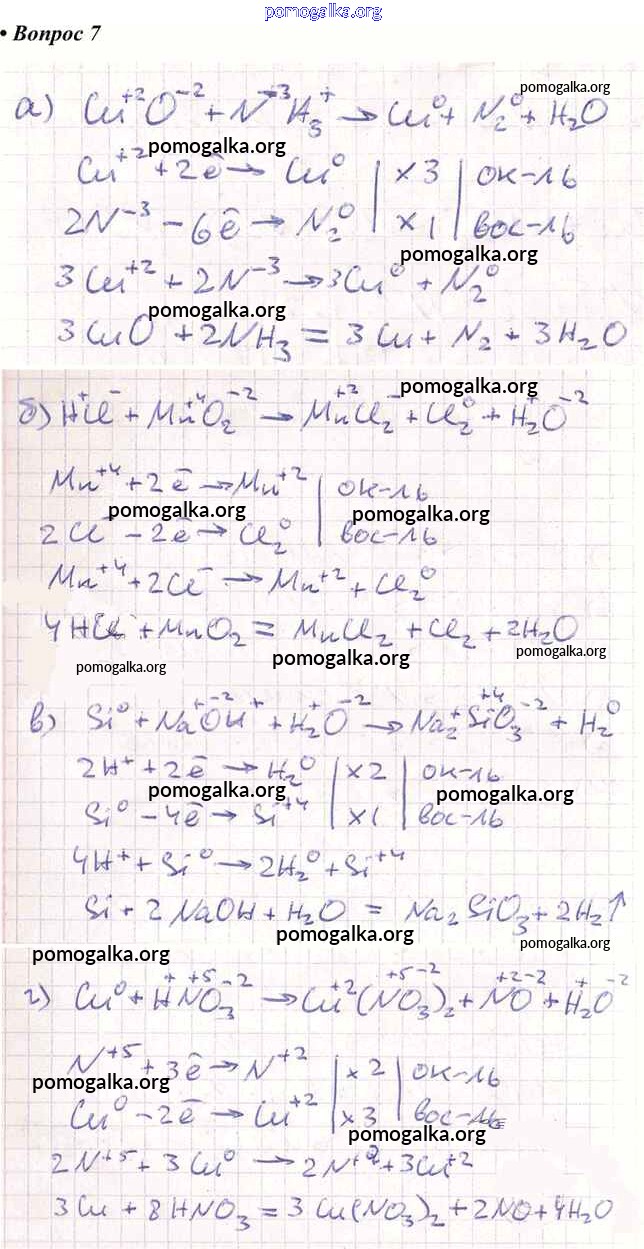 pomogalka.org
• Вопрос 7
pomogalka.org
а) Cu⁺²O⁻² + N⁻³H₃⁺ → Cu⁰ + N₂⁰ + H₂O
pomogalka.org
Cu⁺² + 2ē → Cu⁰ | ×3 | ок-ль
2N⁻³ - 6ē → N₂⁰ | ×1 | вос-ль
pomogalka.org
3Cu⁺² + 2N⁻³ → 3Cu⁰ + N₂⁰
pomogalka.org
3CuO + 2NH₃ = 3Cu + N₂ + 3H₂O
pomogalka.org
б) H⁺Cl⁻ + Mn⁺⁴O₂⁻² → Mn⁺²Cl₂⁻ + Cl₂⁰ + H₂⁺O⁻²
Mn⁺⁴ + 2ē → Mn⁺² | ок-ль
pomogalka.org pomogalka.org
2Cl⁻ - 2ē → Cl₂⁰ | вос-ль
Mn⁺⁴ + 2Cl⁻ → Mn⁺² + Cl₂⁰
4HCl + MnO₂ = MnCl₂ + Cl₂ + 2H₂O
pomogalka.org pomogalka.org pomogalka.org
в) Si⁰ + Na⁺O⁻²H⁺ + H₂⁺O⁻² → Na₂⁺Si⁺⁴O₃⁻² + H₂⁰
2H⁺ + 2ē → H₂⁰ | ×2 | ок-ль
pomogalka.org pomogalka.org
Si⁰ - 4ē → Si⁺⁴ | ×1 | вос-ль
4H⁺ + Si⁰ → 2H₂⁰ + Si⁺⁴
Si + 2NaOH + H₂O = Na₂SiO₃ + 2H₂↑
pomogalka.org pomogalka.org pomogalka.org
г) Cu⁰ + H⁺N⁺⁵O₃⁻² → Cu⁺²(N⁺⁵O₃⁻²)₂ + N⁺²O⁻² + H₂⁺O⁻²
N⁺⁵ + 3ē → N⁺² | ×2 | ок-ль
pomogalka.org
Cu⁰ - 2ē → Cu⁺² | ×3 | вос-ль
pomogalka.org
2N⁺⁵ + 3Cu⁰ → 2N⁺² + 3Cu⁺²
3Cu + 8HNO₃ = 3Cu(NO₃)₂ + 2NO + 4H₂O